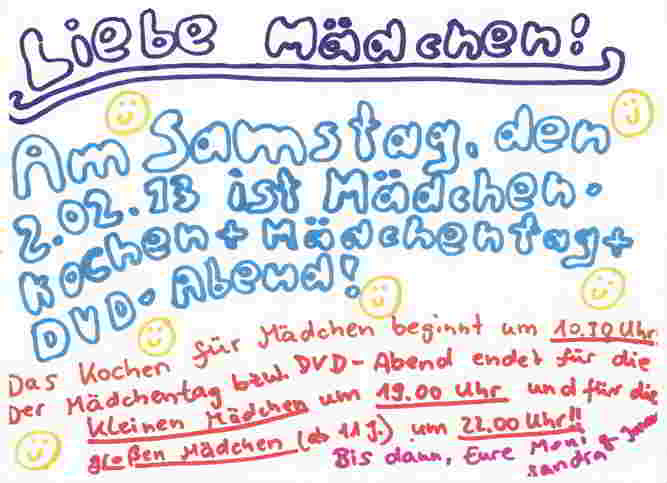 Liebe Mädchen!
Am Samstag, den
2.02.13 ist Mädchen-
kochen + Mädchentag +
DVD-Abend!
Das Kochen für Mädchen beginnt um 10.30 Uhr.
Der Mädchentag bzw. DVD-Abend endet für die
kleinen Mädchen um 19.00 Uhr und für die
großen Mädchen (ab 11 J.) um 22.00 Uhr!!
Bis dann, Eure Moni &
Sandra